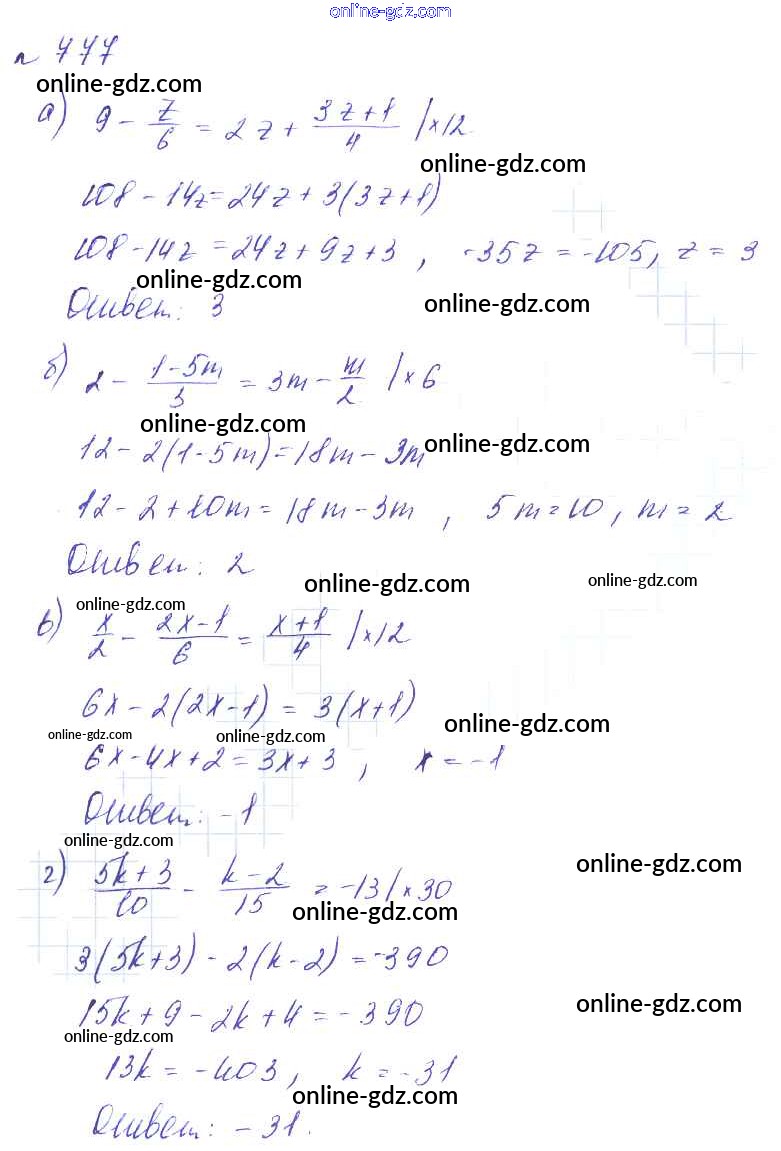 online-gdz.com
№ 777
online-gdz.com
а) 9 - z/6 = 2z + (3z+1)/4 | ×12
online-gdz.com
108 - 14z = 24z + 3(3z+1)
108 - 14z = 24z + 9z + 3 , -35z = -105, z = 3
online-gdz.com
Ответ: 3
online-gdz.com
б) 2 - (1-5m)/3 = 3m - m/2 | × 6
online-gdz.com
12 - 2(1-5m) = 18m - 3m
online-gdz.com
12 - 2 + 10m = 18m - 3m , 5m = 10, m = 2
Ответ: 2
online-gdz.com
online-gdz.com
online-gdz.com
в) x/2 - (2x-1)/6 = (x+1)/4 | ×12
6x - 2(2x-1) = 3(x+1)
online-gdz.com
online-gdz.com
online-gdz.com
6x - 4x + 2 = 3x + 3 , x = -1
Ответ: -1
online-gdz.com
online-gdz.com
г) (5k+3)/10 - (k-2)/15 = -13 | ×30
online-gdz.com
3(5k+3) - 2(k-2) = -390
online-gdz.com
15k + 9 - 2k + 4 = -390
online-gdz.com
13k = -403, k = -31
online-gdz.com
Ответ: -31.